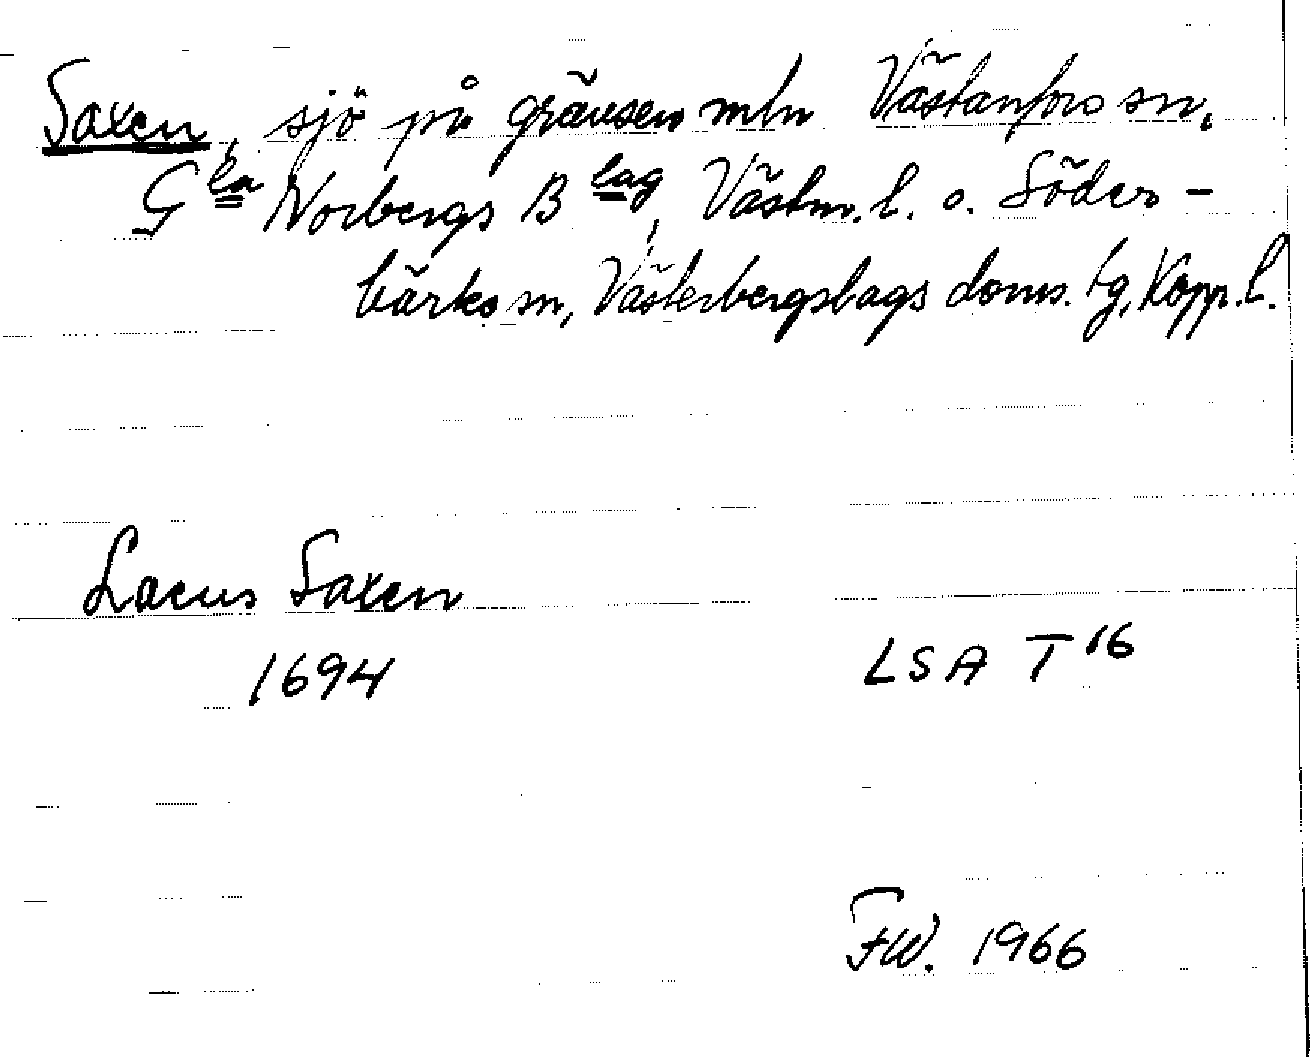 Saxen, sjö på gränsen mln Västanfors sn,
Gla Norbergs Blag, Västm. l. o. Söder-
bärks sn, Västerbergslags doms. tg, Kopp. l.
Lacus Saxen
1694 LSA T 16
FW. 1966